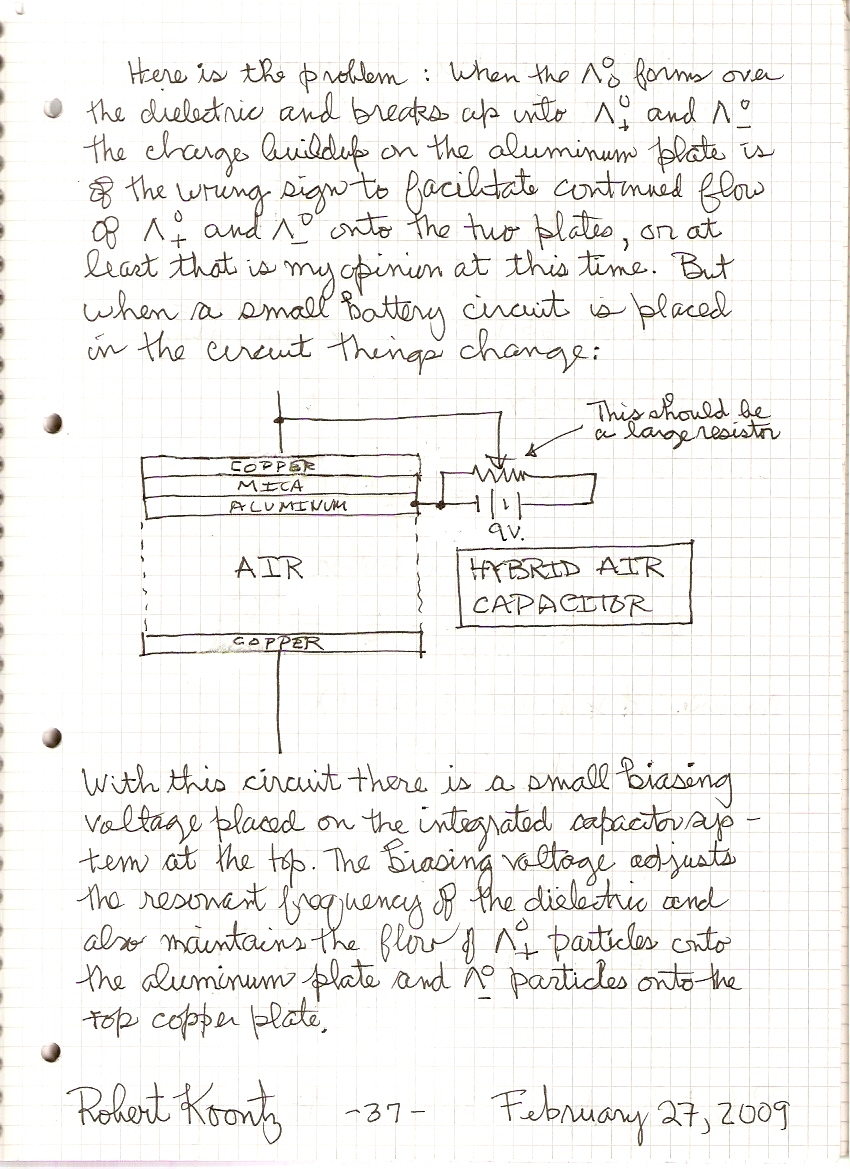 Here is the problem: When the Λ⁰₀ forms over
the dielectric and breaks up into Λ⁰₊ and Λ⁰₋
the charge buildup on the aluminum plate is
the wrong sign to facilitate continued flow
of Λ⁰₊ and Λ⁰₋ onto the two plates, or at
least that is my opinion at this time. But
when a small battery circuit is placed
in the circuit things change:
This should be
a large resistor
COPPER
MICA
ALUMINUM
9V.
AIR
HYBRID AIR
CAPACITOR
COPPER
With this circuit there is a small biasing
voltage placed on the integrated capacitor sys-
tem at the top. The biasing voltage adjusts
the resonant frequency of the dielectric and
also maintains the flow of Λ⁰₊ particles onto
the aluminum plate and Λ⁰₋ particles onto the
top copper plate.
Robert Koontz -37- February 27, 2009